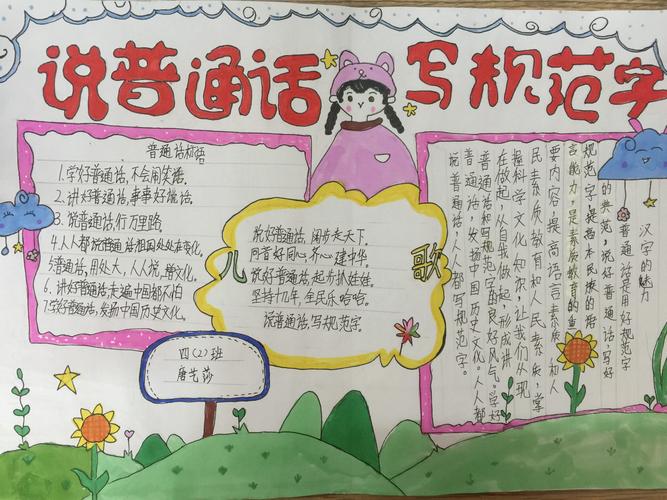 说普通话 写规范字
普通话标语
1.学好普通话,不会闹笑话.
2.讲好普通话,事事好说话.
3.说普通话,行万里路.
4.人人都说普通话祖国处处在变化.
5.普通话,用处大,人人说,增文化.
6.讲好普通话,走遍中国都不怕
7.学好普通话,发扬中国历史文化.
儿歌
说好普通话,阔步走天下.
同音好同心,齐心建中华.
说好普通话,起步抓娃娃.
坚持十几年,全民乐哈哈.
说普通话,写规范字.
四(2)班
汉字的魅力
普通话是用好规范字
的典范,说好普通话,写好
规范字,提高本民族的语
言能力,是素质教育的重
要内容,提高语言素质,和人
民素质教育和人民素质,掌
握科学文化知识,让我们从现
在做起,从自我做起,形成讲
普通话和写规范字的良好风气。学好
普通话,发扬中国历史文化。人人都
说普通话,人人都写规范字。